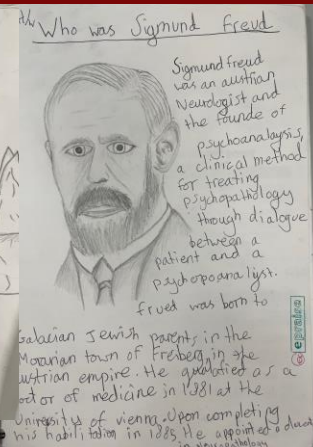 Who was Sigmund Freud
Sigmund freud
was an austrian
Neurologist and
the founde of
psychoanalaysis,
a clinical method
for treating
psychopathology
though dialogue
between a
patient and a
psychopoanalyst.
frued was born to
Galacian Jewish parents in the
Moravian town of Freiberg in the
Austrian empire. He qualified as a
doctor of medicine in 1981 at the
University of vienna. Upon completing
his habilitation in 1885, He appointed a
in neuropathology